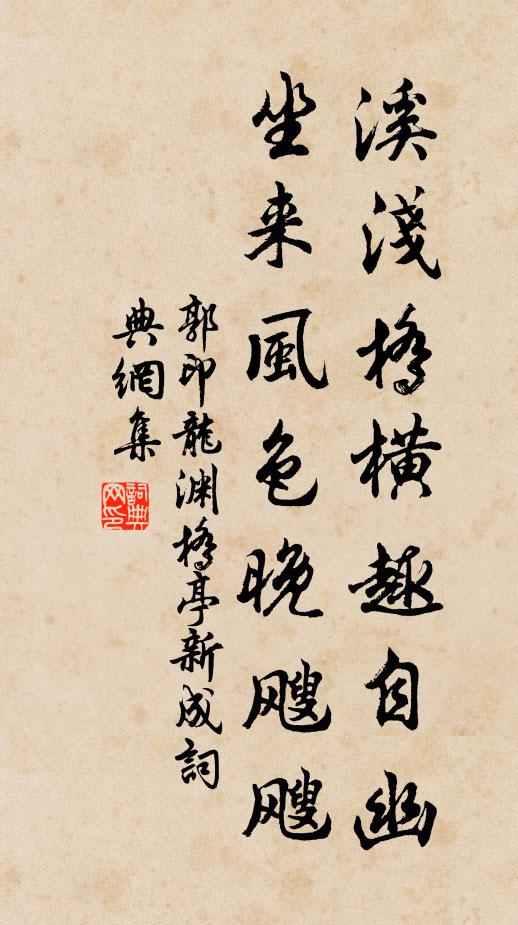 溪淺橋橫趣自幽
坐来風色晚飕飕
郭印龍渊橋亭新成詞
典網集
詞典
网印